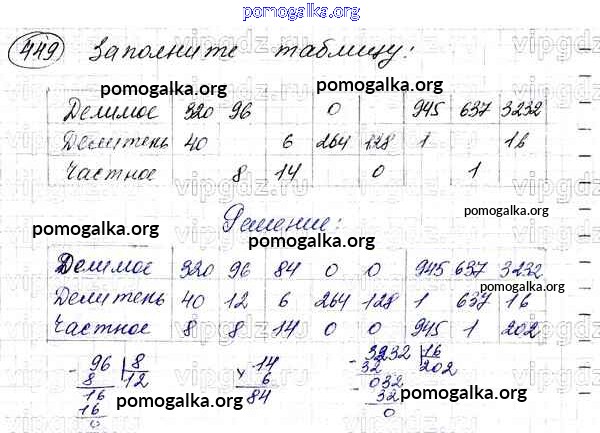 pomogalka.org
449 Заполните таблицу:
pomogalka.org pomogalka.org
Делимое 320 96 0 945 637 3232
Делитель 40 6 264 128 1 16
Частное 8 14 0 1
pomogalka.org
Решение:
pomogalka.org pomogalka.org
Делимое 320 96 84 0 0 945 637 3232
Делитель 40 12 6 264 128 1 637 16
Частное 8 8 14 0 0 945 1 202
pomogalka.org
96 8 14 3232 16
8 12 × 6 32 202
16 84 032
16 32
0 0
pomogalka.org pomogalka.org
vipgdz.ru vipgdz.ru vipgdz.ru